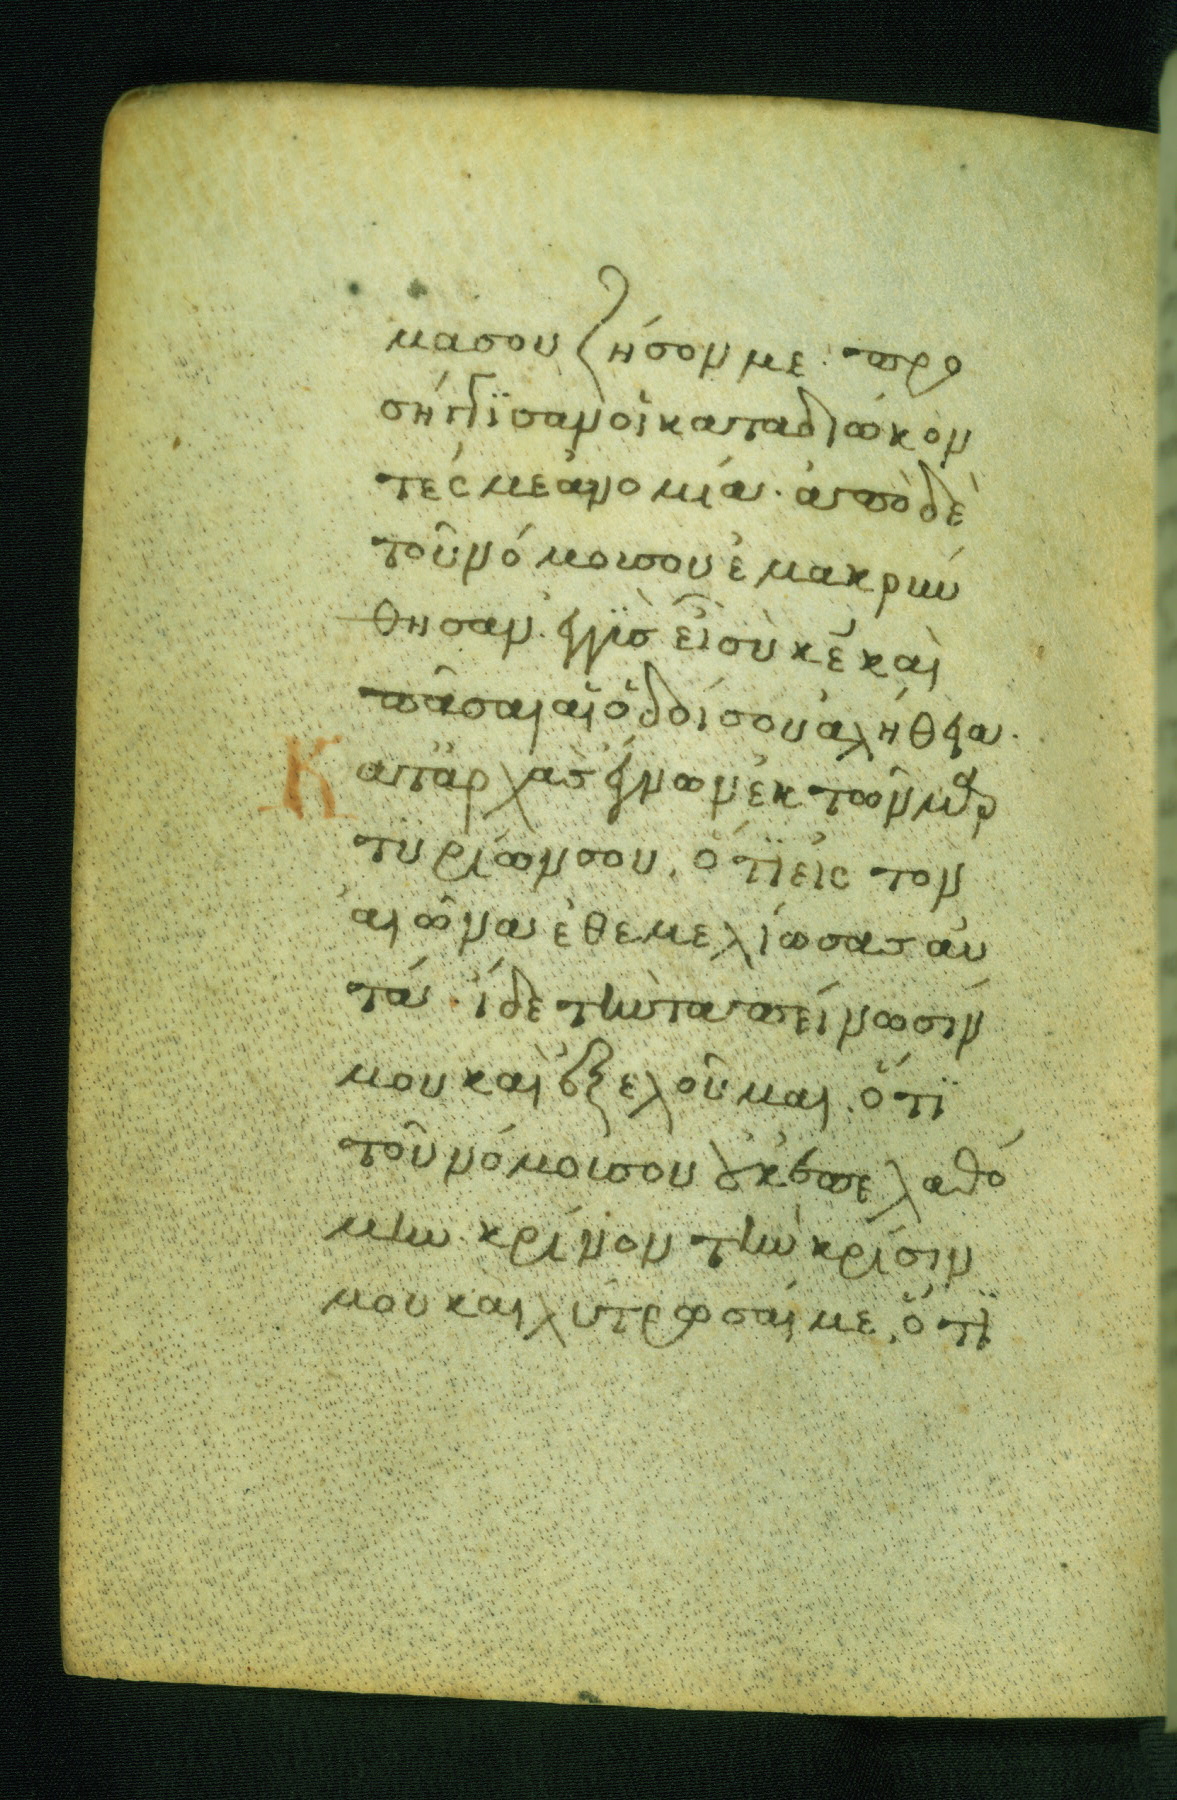 μα σου ζῆσόν με· προ
σήγγϊσαν οἱ καταδιώκον
τές με ἀνομία· ἀπὸ δὲ
τοῦ νόμου σου ἐμακρύν
θησαν· ἐγγῢς εἶ σὺ κ̅ε̅ καὶ
πᾶσαι αἱ ὁδοί σου ἀλήθεια·
Κατἀρχὰς ἔγνων ἐκ τῶν μαρ
τυρίων σου, ὅτϊ εἰς τὸν
αἰῶνα ἐθεμελίωσας αὐ
τά· ἴδε τὴν ταπείνωσίν
μου καὶ ἐξελοῦ μαι· ὅτϊ
τοῦ νόμου σου οὐκ ἐπελαθό
μην· κρίνον τὴν κρίσιν
μου καὶ λύτρωσαί με, ὅτϊ